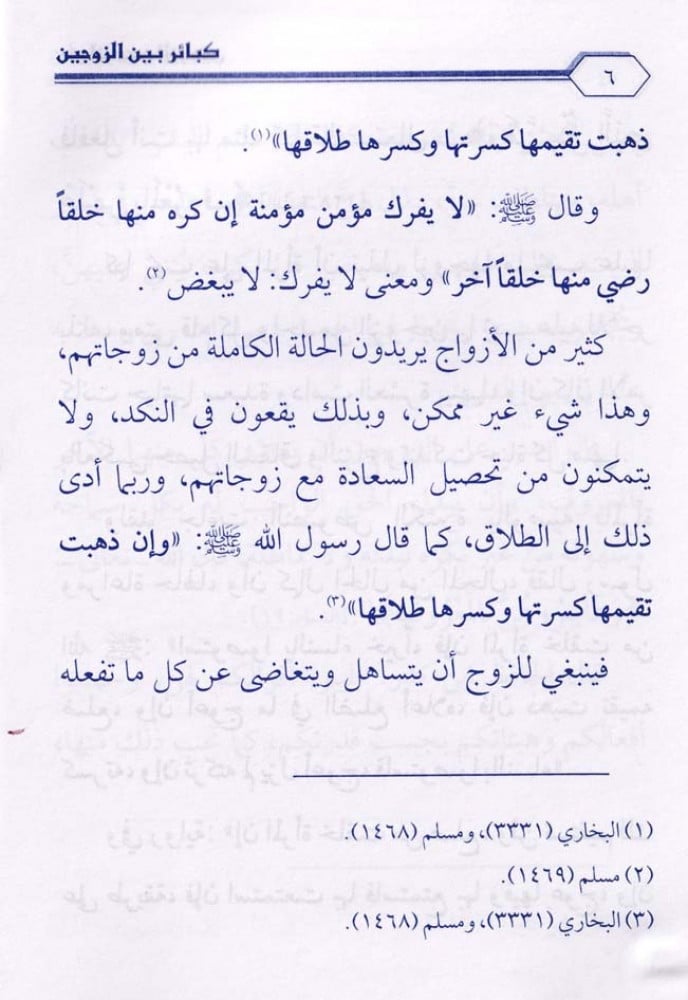 كبائر بين الزوجين
٦
ذهبت تقيمها كسرتها وكسرها طلاقها»(١).
وقال ﷺ: «لا يفرك مؤمن مؤمنة إن كره منها خلقاً
رضي منها خلقاً آخر» ومعنى لا يفرك: لا يبغض(٢).
كثير من الأزواج يريدون الحالة الكاملة من زوجاتهم،
وهذا شيء غير ممكن، وبذلك يقعون في النكد، ولا
يتمكنون من تحصيل السعادة مع زوجاتهم، وربما أدى
ذلك إلى الطلاق، كما قال رسول الله ﷺ: «وإن ذهبت
تقيمها كسرتها وكسرها طلاقها»(٣).
فينبغي للزوج أن يتساهل ويتغاضى عن كل ما تفعله
(١) البخاري (٣٣٣١)، ومسلم (١٤٦٨).
(٢) مسلم (١٤٦٩).
(٣) البخاري (٣٣٣١)، ومسلم (١٤٦٨).